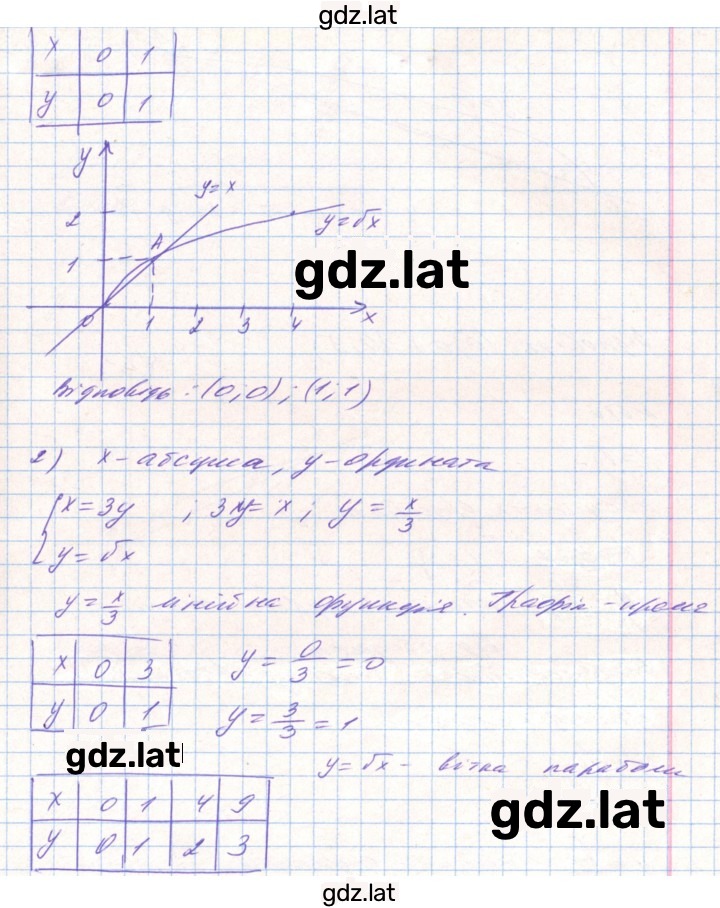 gdz.lat
x 0 1
y 0 1
y
y = x
2
y = √x
A
1
gdz.lat
0 1 2 3 4 x
Відповідь: (0; 0); (1; 1)
2) x - абсциса, y - ордината
{ x = 3y ; 3y = x ; y = x/3
y = √x
y = x/3 лінійна функція. Графік - пряма
x 0 3
y 0 1
y = 0/3 = 0
y = 3/3 = 1
gdz.lat
y = √x - вітка параболи
x 0 1 4 9
y 0 1 2 3
gdz.lat
gdz.lat